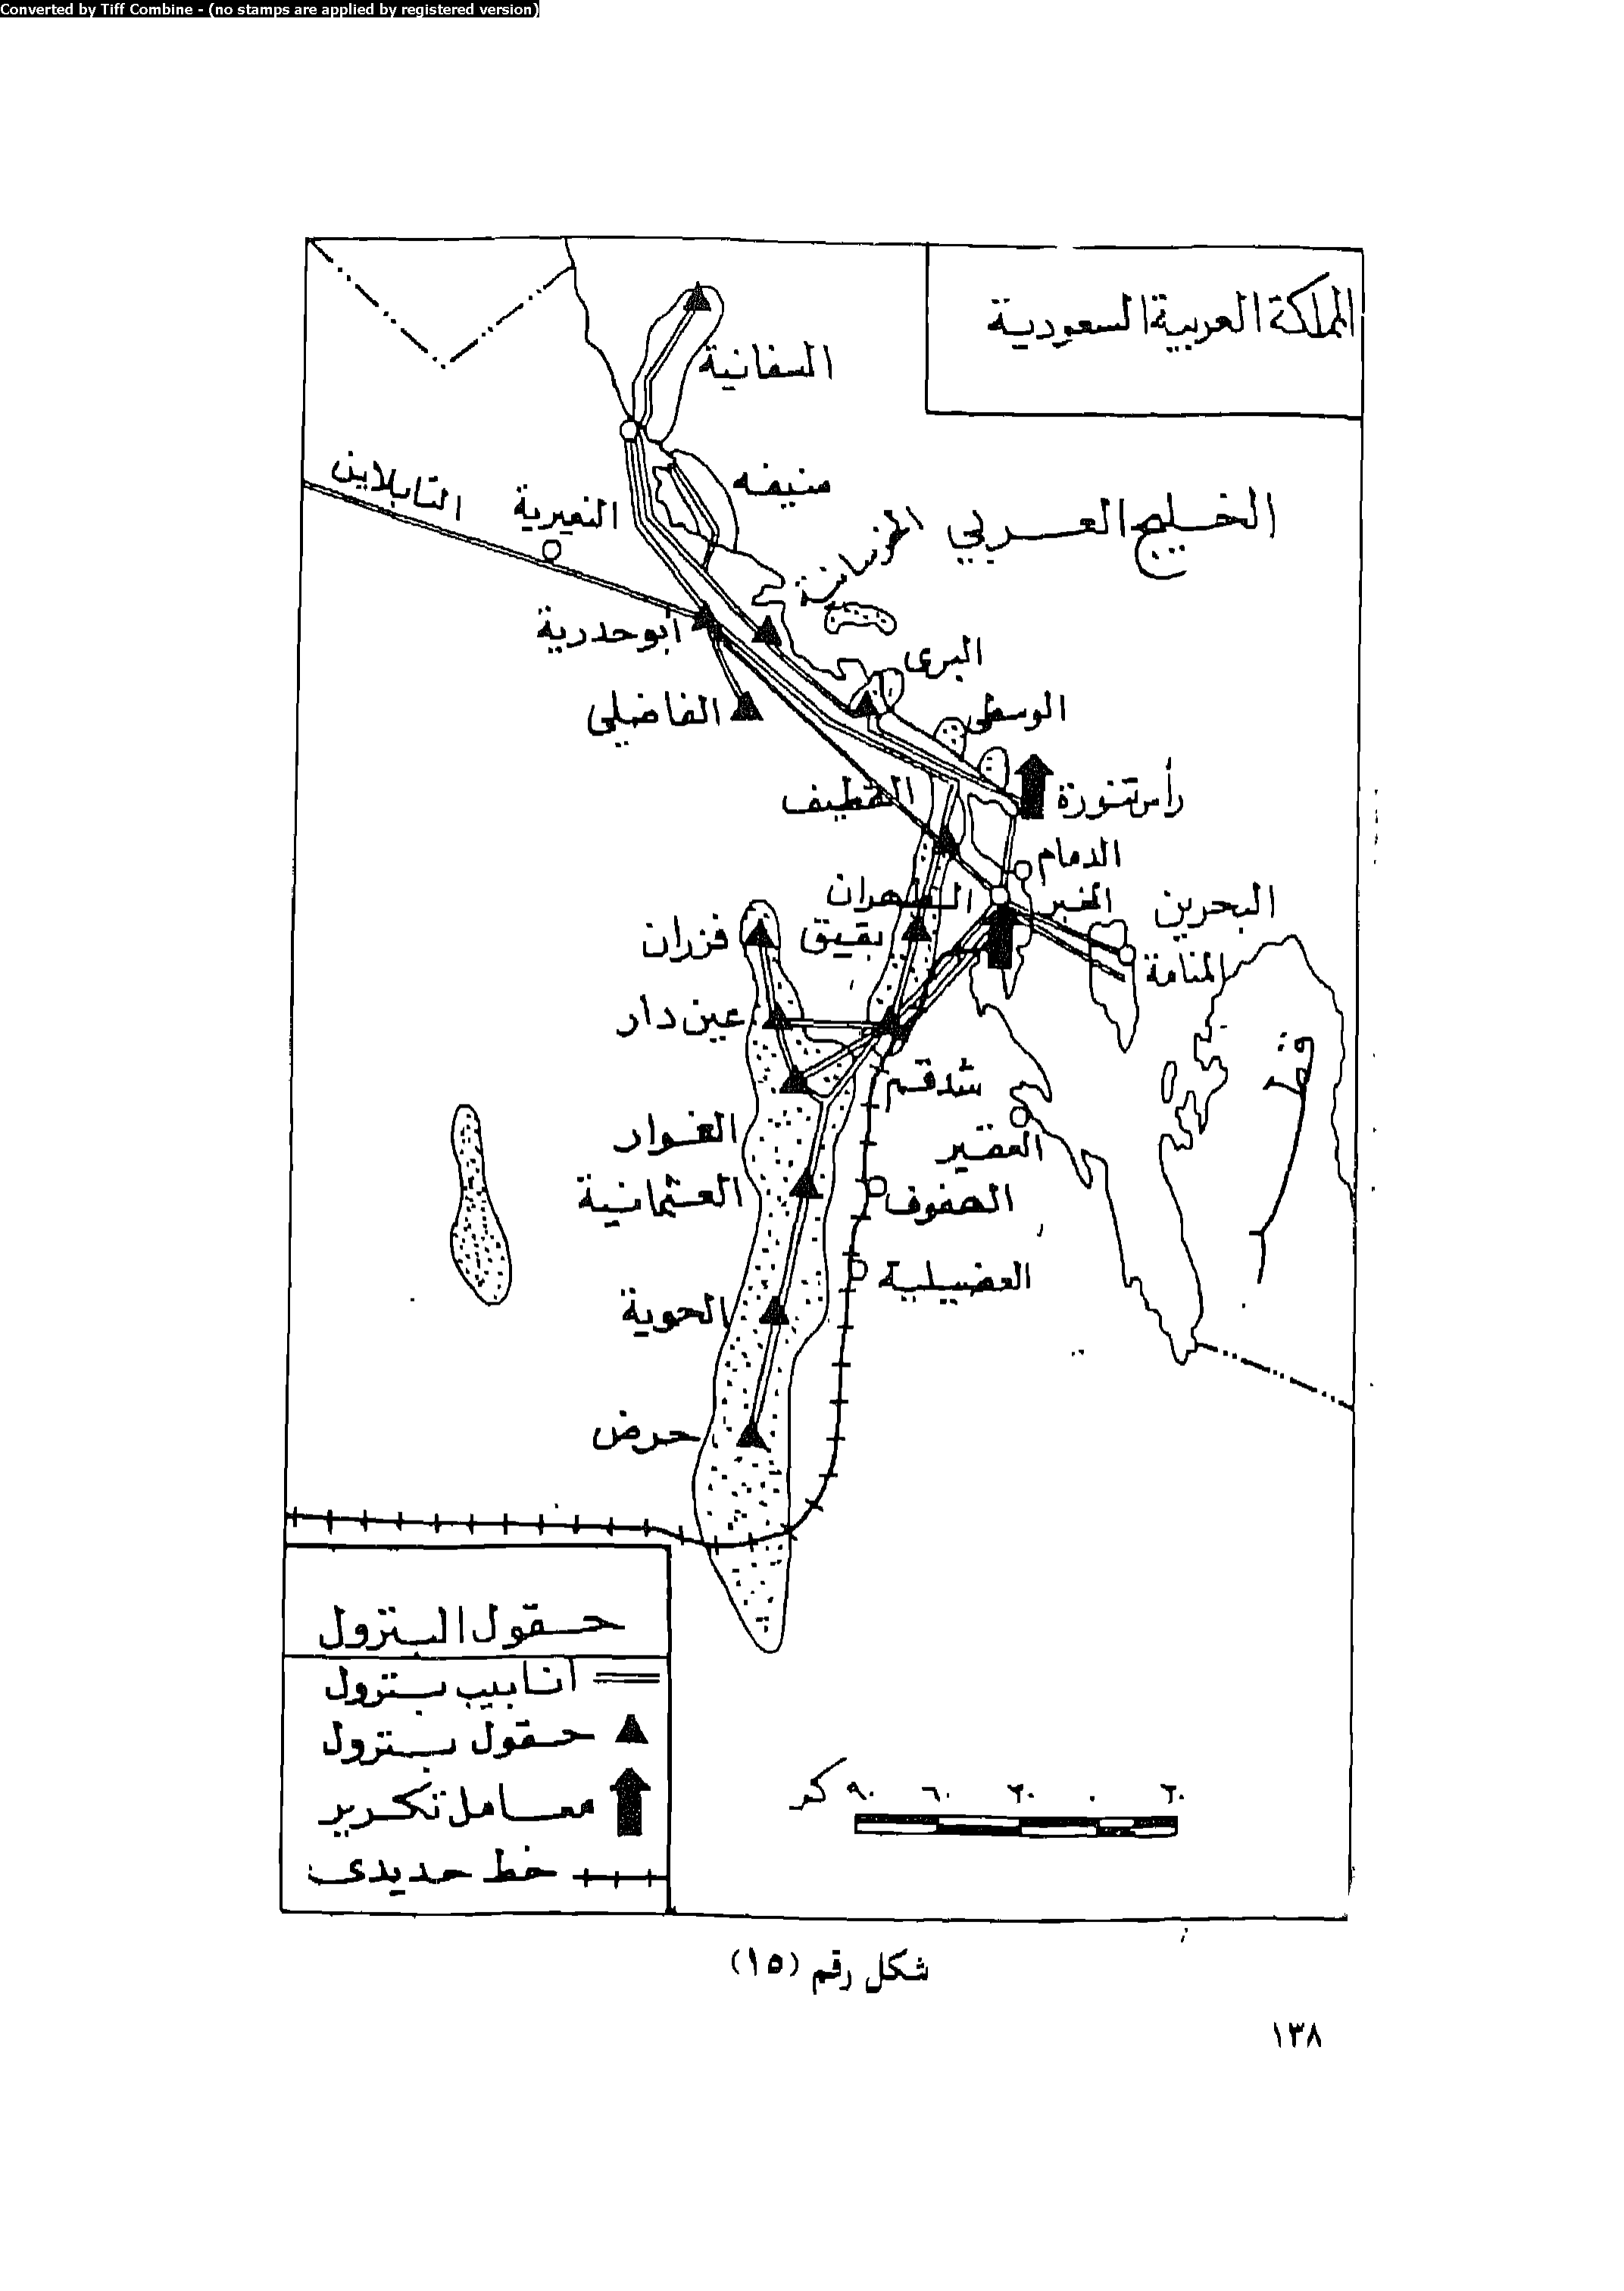 Converted by Tiff Combine - (no stamps are applied by registered version)
المملكة العربية السعودية
السفانية
منيفه
التابلاين
النعيرية
الخليج العربي
ابوحدرية
البرى
الفاضلي
القطيف
رأس تنورة
الدمام
الظهران
الخبر
البحرين
فزران
بقيق
المنامة
عين دار
قطر
شدقم
الغوار
العقير
العثمانية
الهفوف
العضيلية
الحوية
حرض
حقول البترول
انابيب بترول
حقول بترول
معامل تكرير
خط حديدى
٣٠ ٠ ٣٠ ٦٠ ٩٠ كم
شكل رقم (١٥)
١٣٨